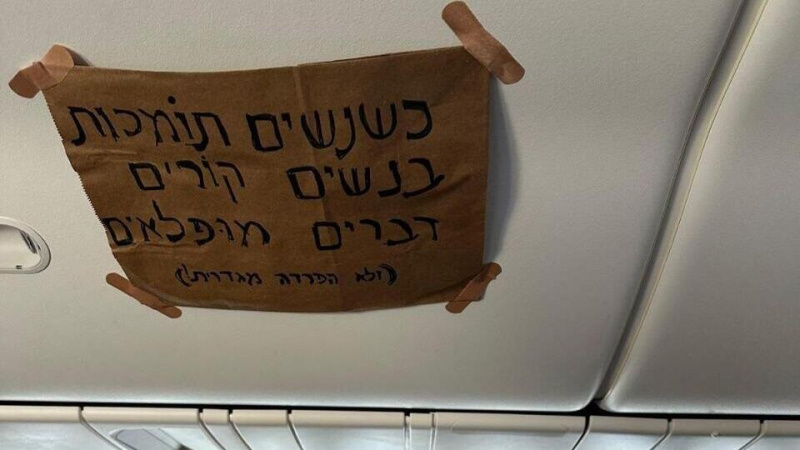 כשנשים תומכות
בנשים קורים
דברים מופלאים
(ולא הפרדה מגדרית!)